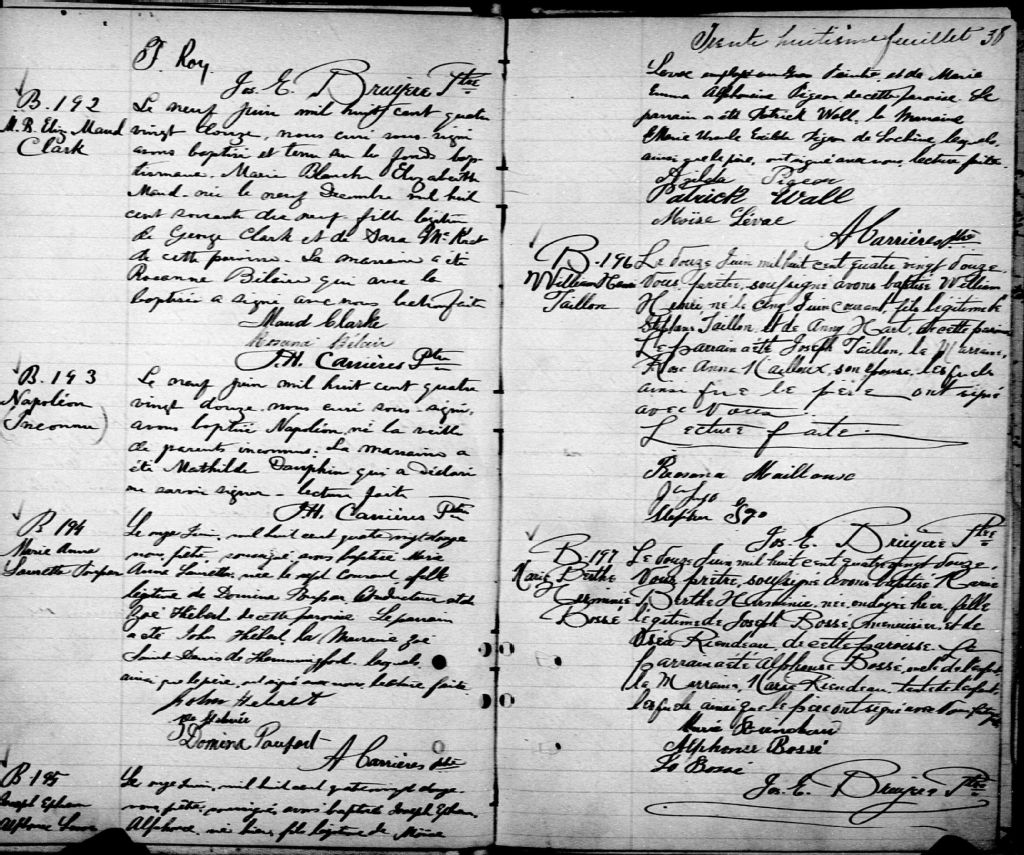 F. Roy
Jos. E. Bruyère Ptre
B. 192
M. B. Eliz. Maud
Clark
Le neuf juin mil huit cent quatre
vingt douze, nous curé sous-signé
avons baptisé et tenu sur les fonds bap
tismaux Marie Blanche Elizabeth
Maud, née le neuf Decembre mil huit
cent soixante dix neuf fille légitime
de George Clark et de Sara
de cette paroisse. La marraine a été
Rosanne Bélair qui avec la
baptisée a signé avec nous lecture faite
Maud Clarke
Rosanne Bélair
J.H. Carrières Ptre
B. 193
Napoléon
Inconnu
Le neuf juin mil huit cent quatre
vingt douze nous curé sous-signé,
avons baptisé Napoléon né la veille
de parents inconnus. La marraine a
été Mathilde Dauphin qui a déclaré
ne savoir signer - lecture faite
J.H. Carrières Ptre
B 194
Marie Anne
Laurette
Le onze Juin, mil huit cent quatre vingt douze
nous, prêtre, soussigné avons baptisé Marie
Anne Laurette, née le sept courant, fille
légitime de Domina conducteur et de
Zoé Hébert de cette paroisse Le parrain
a été John Hébert, la Marraine Zoé
Saint Denis de Hemmingford, lesquels
ainsi que le père, ont signé avec nous, lecture faite.
John Hebert
Domina
A Carrières ptre
B 195
Joseph
Alphonse
Le onze Juin, mil huit cent quatre vingt douze
nous prêtre, soussigné avons baptisé Joseph
Alphonse, né hier, fils légitime de Moïse
Trente huitième feuillet 38
Levac employé au et de Marie
Emma Alphonsine Pigeon, de cette paroisse. Le
parrain a été Patrick Wall, la Marraine
Marie Pigeon de Lachine, lesquels,
ainsi que le père, ont signé avec nous, lecture faite.
Azilda Pigeon
Patrick Wall
Moïse Lévac
A Carrières ptre
B. 196
William Henri
Taillon
Le douze Juin mil huit cent quatre vingt douze
Nous, prêtre, soussigné avons baptisé William
Henri né le cinq Juin courant, fils légitime de
Stephane Taillon, et de Anny Hart, de cette paroisse
Le parrain a été Joseph Taillon, la Marraine,
Rose Anna Mailloux, son épouse, lesquels
ainsi que le père ont signé
avec Nous.
Lecture faite.
Rosana Maillouse
Stephen
Jos. E. Bruyère Ptre
B. 197
Marie Berthe
Herminie
Bossé
Le douze Juin mil huit cent quatre vingt douze.
Nous, prêtre, soussigné avons baptisé Marie
Berthe Herminie, née hier, fille
légitime de Joseph Bossé, menuisier, et de
Riendeau, de cette paroisse. Le
parrain a été Alphonse Bossé, oncle de l'enfant
la Marraine, Marie Riendeau, tante de l'enfant,
lesquels ainsi que le père ont signé avec Nous
Marie Riendeau
Alphonse Bossé
Bossé
Jos. E. Bruyère Ptre